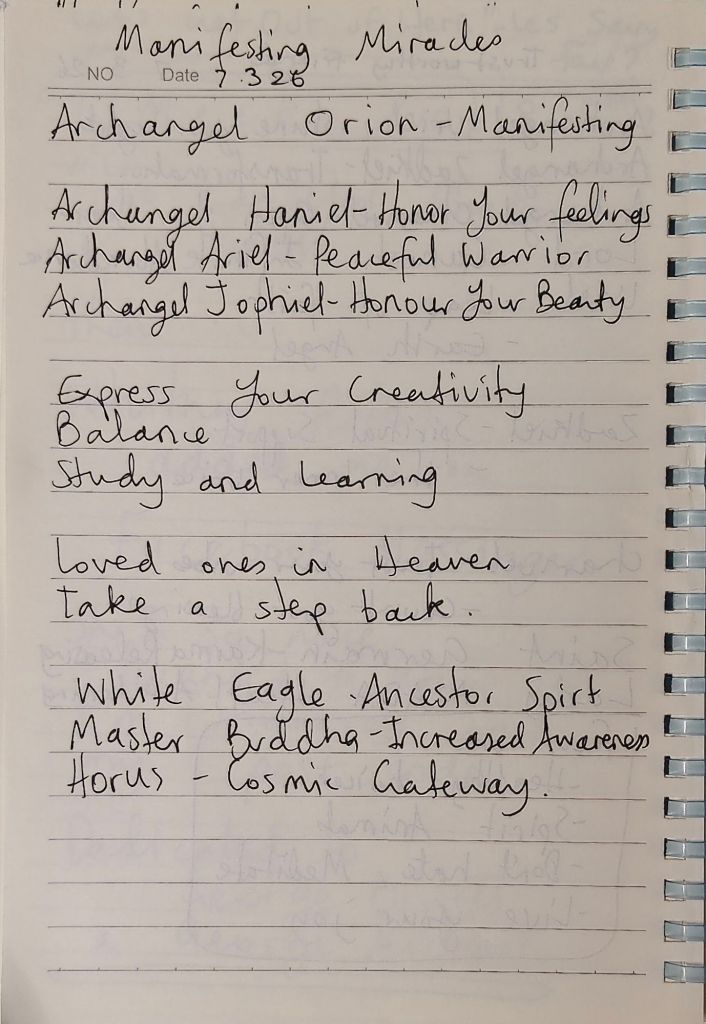 Manifesting Miracles
NO Date 7.3 26
Archangel Orion - Manifesting
Archangel Haniel - Honor Your feelings
Archangel Ariel - Peaceful Warrior
Archangel Jophiel - Honour Your Beauty
Express Your Creativity
Balance
Study and Learning
Loved ones in Heaven
Take a step back.
White Eagle . Ancestor Spirt
Master Buddha - Increased Awareness
Horus - Cosmic Gateway.